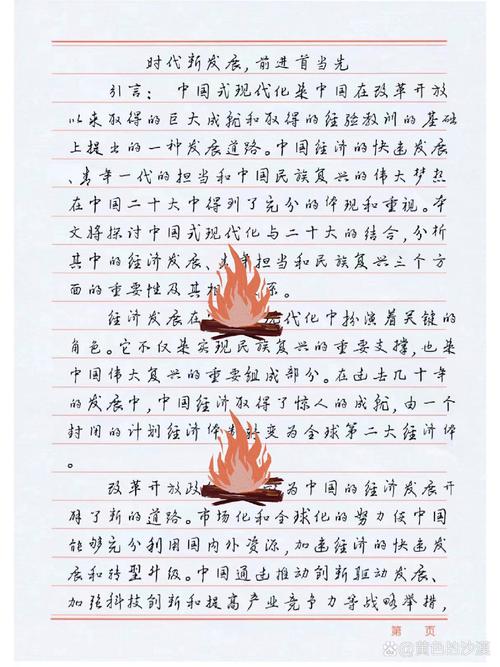 时代新发展,前进首当先
引言: 中国式现代化是中国在改革开放
以来取得的巨大成就和取得的经验教训的基础
上提出的一种发展道路。中国经济的快速发展
、青年一代的担当和中国民族复兴的伟大梦想
在中国二十大中得到了充分的体现和重视。本
文将探讨中国式现代化与二十大的结合,分析
其中的经济发展、年担当和民族复兴三个方
面的重要性及其相系。
经济发展在现代化中扮演着关键的
角色。它不仅是实现民族复兴的重要支撑,也是
中国伟大复兴的重要组成部分。在过去几十年
的发展中,中国经济取得了惊人的成就,由一个
封闭的计划经济体转变为全球第二大经济体
。
改革开放政为中国的经济发展开
辟了新的道路。市场化和全球化的努力使中国
能够充分利用国内外资源,加速经济的快速发
展和转型升级。中国通过推动创新驱动发展、
加强科技创新和提高产业竞争力等战略举措,
第 页
@黄色的沙漠